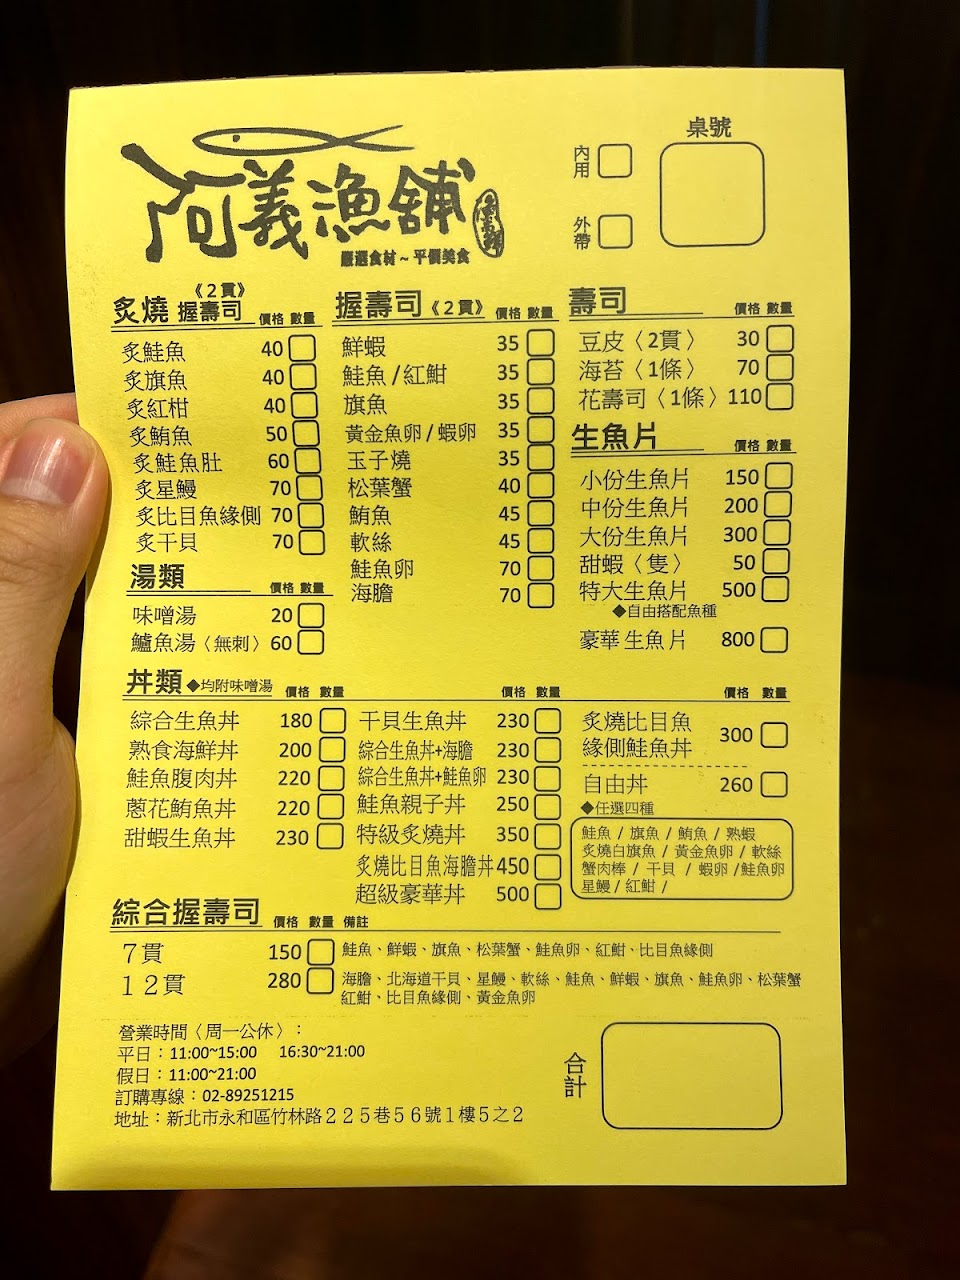 阿義漁舖
嚴選食材～平價美食
內用
外帶
桌號
炙燒 握壽司 《2貫》 價格 數量
炙鮭魚 40
炙旗魚 40
炙紅柑 40
炙鮪魚 50
炙鮭魚肚 60
炙星鰻 70
炙比目魚緣側 70
炙干貝 70
湯類 價格 數量
味噌湯 20
鱸魚湯〈無刺〉 60
握壽司《2貫》 價格 數量
鮮蝦 35
鮭魚/紅魽 35
旗魚 35
黃金魚卵/蝦卵 35
玉子燒 35
松葉蟹 40
鮪魚 45
軟絲 45
鮭魚卵 70
海膽 70
壽司 價格 數量
豆皮〈2貫〉 30
海苔〈1條〉 70
花壽司〈1條〉 110
生魚片 價格 數量
小份生魚片 150
中份生魚片 200
大份生魚片 300
甜蝦〈隻〉 50
特大生魚片 500
◆自由搭配魚種
豪華生魚片 800
丼類◆均附味噌湯 價格 數量
綜合生魚丼 180
熟食海鮮丼 200
鮭魚腹肉丼 220
蔥花鮪魚丼 220
甜蝦生魚丼 230
價格 數量
干貝生魚丼 230
綜合生魚丼+海膽 230
綜合生魚丼+鮭魚卵 230
鮭魚親子丼 250
特級炙燒丼 350
炙燒比目魚海膽丼 450
超級豪華丼 500
價格 數量
炙燒比目魚
緣側鮭魚丼 300
自由丼 260
◆任選四種
鮭魚 / 旗魚 / 鮪魚 / 熟蝦
炙燒白旗魚 / 黃金魚卵 / 軟絲
蟹肉棒 / 干貝 / 蝦卵 /鮭魚卵
星鰻/ 紅魽 /
綜合握壽司 價格 數量 備註
7貫 150 鮭魚、鮮蝦、旗魚、松葉蟹、鮭魚卵、紅魽、比目魚緣側
12貫 280 海膽、北海道干貝、星鰻、軟絲、鮭魚、鮮蝦、旗魚、鮭魚卵、松葉蟹
紅魽、比目魚緣側、黃金魚卵
營業時間〈周一公休〉：
平日：11:00~15:00 16:30~21:00
假日：11:00~21:00
訂購專線：02-89251215
地址：新北市永和區竹林路225巷56號1樓5之2
合計